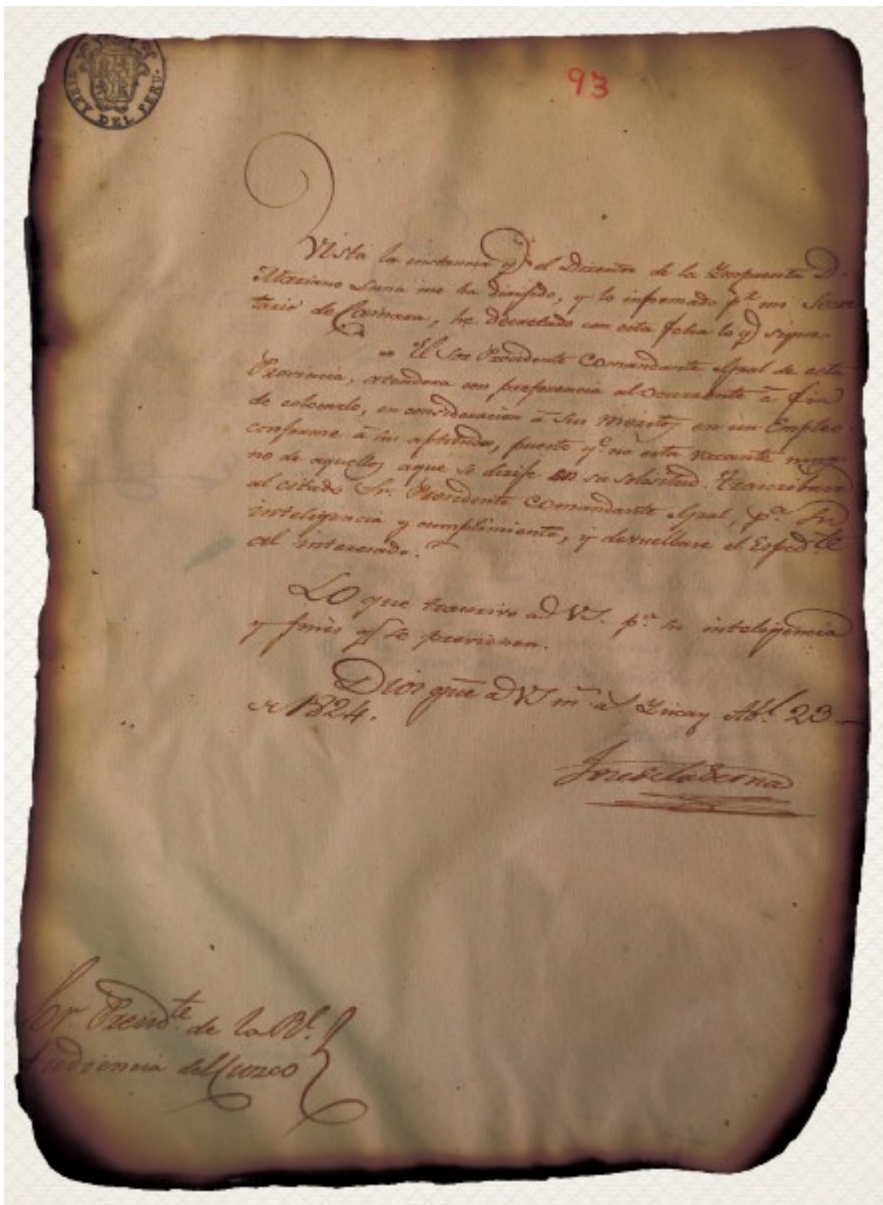 VIREY DEL PERU.
93
Vista la instancia q.e el Director de la Imprenta D.
Mariano me ha dirijido, y lo informado p.r mi Secre
tario de Camara, he decretado con esta fecha lo q.e sigue
El Sor Precidente Comandante Gral de esta
Provincia, atendera con preferencia al ocurrente à fin
de colocarlo, en consideracion à sus meritos en un Empleo
conforme à su aptitudes, puesto q.e no esta vacante ningu
no de aquellos aque se dirije en su solisitud. Trancribase
al citado Sr. Precidente Comandante Gral, p.a su
inteligencia y cumplimiento, y devuelbase el Esped.te
al interesado.
LO que trancrivo à VS. p.a su inteligencia
y fines q.e se previenen.
Dios gue à VS m.s a.s Abl. 23
de 1824.
Jose de la Serna
Sor. Presid.te de la Rl.
Audiencia del Cuzco